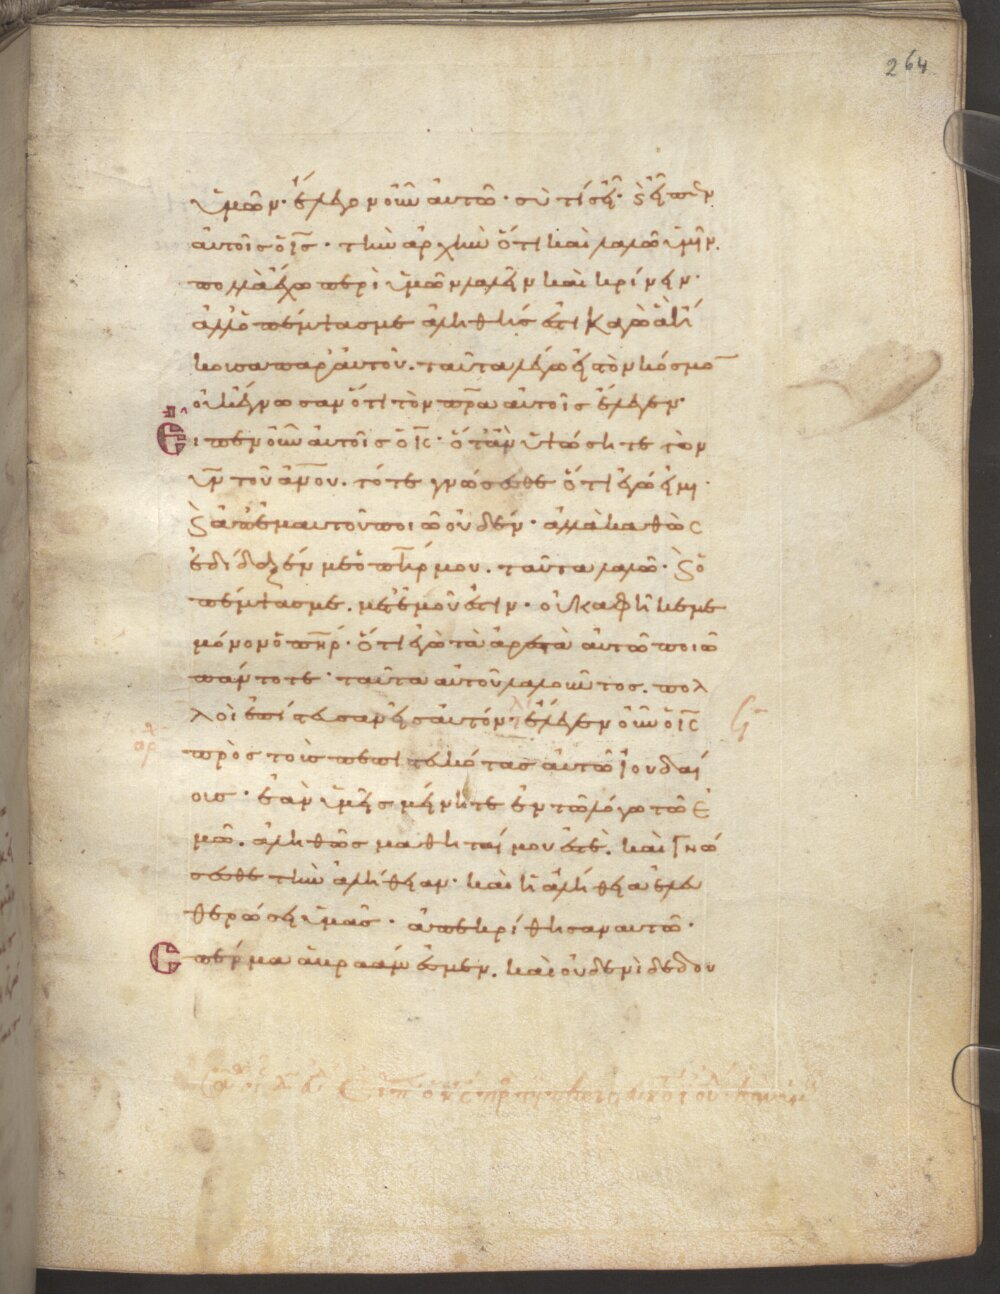 264
ὑμῶν· ἔλεγον οὖν αὐτῶ· σὺ τίς εἶ· καὶ εἶπεν
αὐτοῖς ὁ ἰς· τὴν ἀρχὴν ὅτι καὶ λαλῶ ὑμῖν.
πολλὰ ἔχω περὶ ὑμῶν λαλεῖν καὶ κρίνειν·
ἀλλ' ὁ πέμψας με ἀληθής ἐστι κἀγὼ ἃ ἤ
κουσα παρ' αὐτοῦ. ταῦτα λέγω εἰς τὸν κόσμον
οὐκ ἔγνωσαν ὅτι τὸν πρα αὐτοῖς ἔλεγεν·
Εἶπεν οὖν αὐτοῖς ὁ ἰς· ὅταν ὑψώσητε τὸν
υν τοῦ ἀνου. τότε γνώσεσθε ὅτι ἐγώ εἰμι·
καὶ ἀπ' ἐμαυτοῦ ποιῶ οὐδέν· ἀλλὰ καθὼς
ἐδίδαξέν με ὁ πηρ μου. ταῦτα λαλῶ· καὶ ὁ
πέμψας με. μετ' ἐμοῦ ἐστιν· οὐκ ἀφῆκέ με
μόνον ὁ πηρ· ὅτι ἐγὼ τὰ ἀρεστὰ αὐτῶ ποιῶ
πάντοτε· ταῦτα αὐτοῦ λαλοῦντος. πολ
λοὶ ἐπίστευσαν εἰς αὐτόν· ἔλεγεν οὖν ὁ ἰς
πρὸς τοὺς πεπιστευκότας αὐτῶ ἰουδαί
οις· ἐὰν ὑμεῖς μείνητε ἐν τῶ λόγω τῶ ἐ
μῶ. ἀληθῶς μαθηταί μου ἐστέ. καὶ γνώ
σεσθε τὴν ἀλήθειαν· καὶ ἡ ἀλήθεια ἐλευ
θερώσει ὑμᾶς· ἀπεκρίθησαν αὐτῶ·
Σπέρμα ἀβραάμ ἐσμεν. καὶ οὐδενὶ δεδου